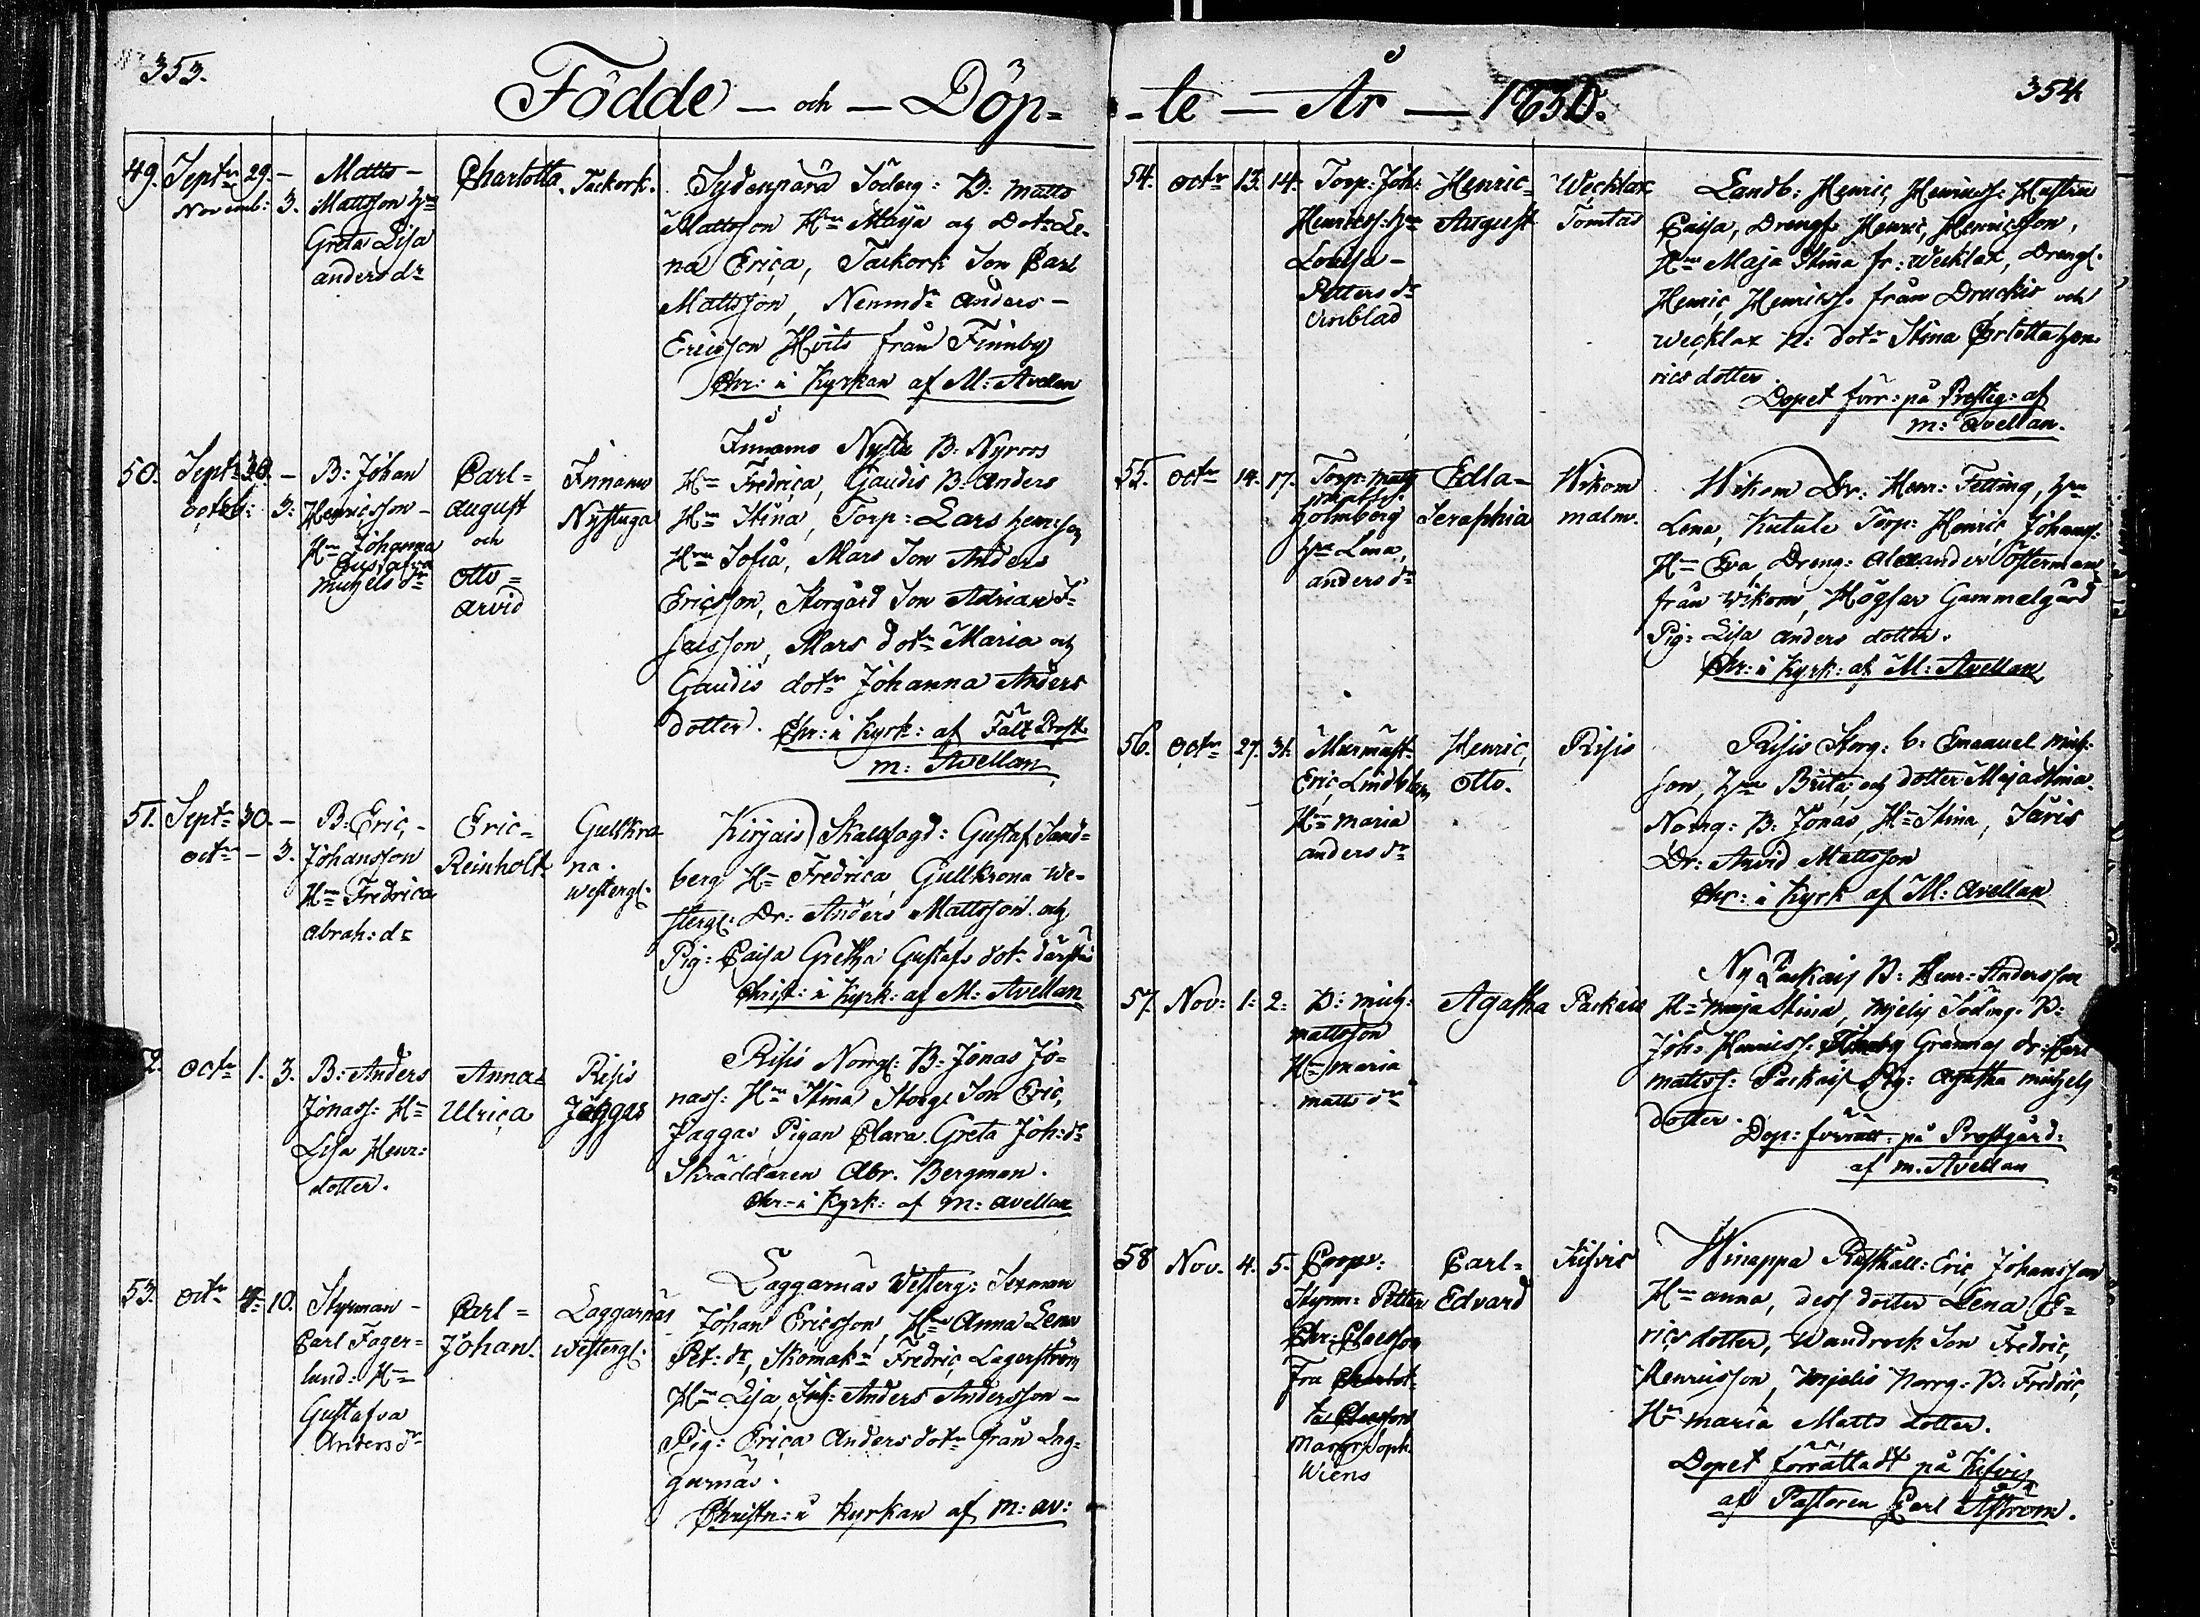 353.
Födde — och — Döp=
49. Septr 29. —
Novemb: 3.
Matts —
Mattsson Hn
Greta Lisa
anders dr
Charlotta
Tackork.
Sydenpärä Söderg: B: Matts
Mattsson Hn Maija og Dotr Le-
na Erica, Tackork Son Carl
Mattsson, Nemnd: Anders —
Ericsson Hvits från Finnby
Chr: i Kyrkan af M: Avellan
50. Septr 30. —
octob: 3:
B: Johan
Henricsson —
Hn Johanna
Gustafva
Michels dr
Carl=
august
och
Otto=
arvid
Innamo
Nystuga
Innamo Nysta B: Nyroos
Hn Fredrica, Gaudis B: Anders
Hn Stina, Torp: Lars Henrson
Hn Sofia, Mars Son Anders
Ericsson, Storgård Son Adrian I-
sacsson, Mars dotr Maria och
Gaudis dotr Johanna Anders
dotter. Chr: i Kyrk: af Fält Prost
M: Avellan
51. Septr 30. —
octr — 3.
B: Eric —
Johansson
Hn Fredrica
Abrah: dr
Eric=
Reinholt
Gullkro
na
Westergl:
Kirjais Skallfogd: Gustaf Sand=
berg Hn Fredrica, Gullkrona We-
stergl: Dr: Anders Mattsson och
Pig: Caisa Gretha Gustafs dotr därstäs
Christ: i Kyrk: af M: Avellan
52. Octr 1. 3.
B: Anders
Jonass: Hn
Lisa Henr:
dotter.
Anna=
Ulrica
Risis
Jaggas
Risis Norrgl: B: Jonas Jo=
nass: Hn Stina Storgs Son Eric,
Jaggas Pigan Clara Greta Joh: dr
Skräddaren Abr. Bergman.
Chr: i Kyrk: af M: Avellan
53. Octr 4: 10.
Styrman —
Carl Fager=
lund: Hn
Gustafva
Anders dr
Carl=
Johan.
Laggarnäs
Westergl:
Laggarnäs Westerg: Sexman
Johan Ericsson, Hn Anna Lena
Pet: dr, Skomakn Fredric Lagerström
Hn Lisa, Anders Andersson —
Pig: Erica Anders dotr från Lag=
garnäs.
Christn: i Kyrkan af M: Av:
354.
-te — År — 1830.
54. Octr 13. 14.
Torp: Joh:
Henricss: Hn
Lovisa —
Petters dr
Henric=
August
Wecklax
Tomtas
Landb: Henric Henricss: Hustru
Caisa, Drengl: Henric Henricsson,
Hn Maja Stina fr: Wecklax, Drengl:
Henric Henricss: från Druckis och
Wecklax P: dotr Stina Chrlotta Hen-
rics dotter.
Dopet förr: på Prostig: af
M: Avellan.
55. Octr 14. 17.
Torp: Matts
Holmberg
Hn Lena
anders dr
Edla=
Seraphia
Wikom
malm.
Wikom Dr: Henr: Fetting, Hn
Lena, Kutule Torp: Henric Johanss:
Hn Eva, Dreng: Alexander Österman
från Wikom, Högsar Gammelgård
Pig: Lisa Anders dotter.
Chr: i Kyrk: af M: Avellan
56. Octr 27. 31.
Murmäst:
Eric Lindblom
Hn Maria
Anders dr
Henric
Otto.
Risis
Risis Storg: b: Emanuel Mich:
son, Hn Brita och dotter Maja Stina
Norrg: B: Jonas, Hn Stina, Saris
Dr: Arvid Mattsson
Chr: i Kyrk af M: Avellan
57. Nov: 1: 2:
B: Mich:
Mattsson
Hn Maria
Matts dr
Agatha
Packais
Ny Packais B: Henr: Andersson
Hn Maja Stina, Mielis Söderg: B:
Joh: Henricss: Grannas dr: Carl
Mattss: Packais Pig: Agatha Michels
dotter.
Dop: förrätt: på Prostgård:
af M. Avellan
58 Nov. 4. 5.
Coop:
Styrm: Petter
Chr: Claesson
Fru
Margr: Soph:
Wiens
Carl=
Edvard
Kifvis
Winappa Rusthåll: Eric Johansson
Hn Anna, dess dotter Lena E=
rics dotter, Wandrock Son Fredric
Henricsson, Mjelis Norrg: B: Fredric,
Hn Maria Matts dotter.
Dopet förrättadt på Kifvis
af Pastoren Carl Åström.